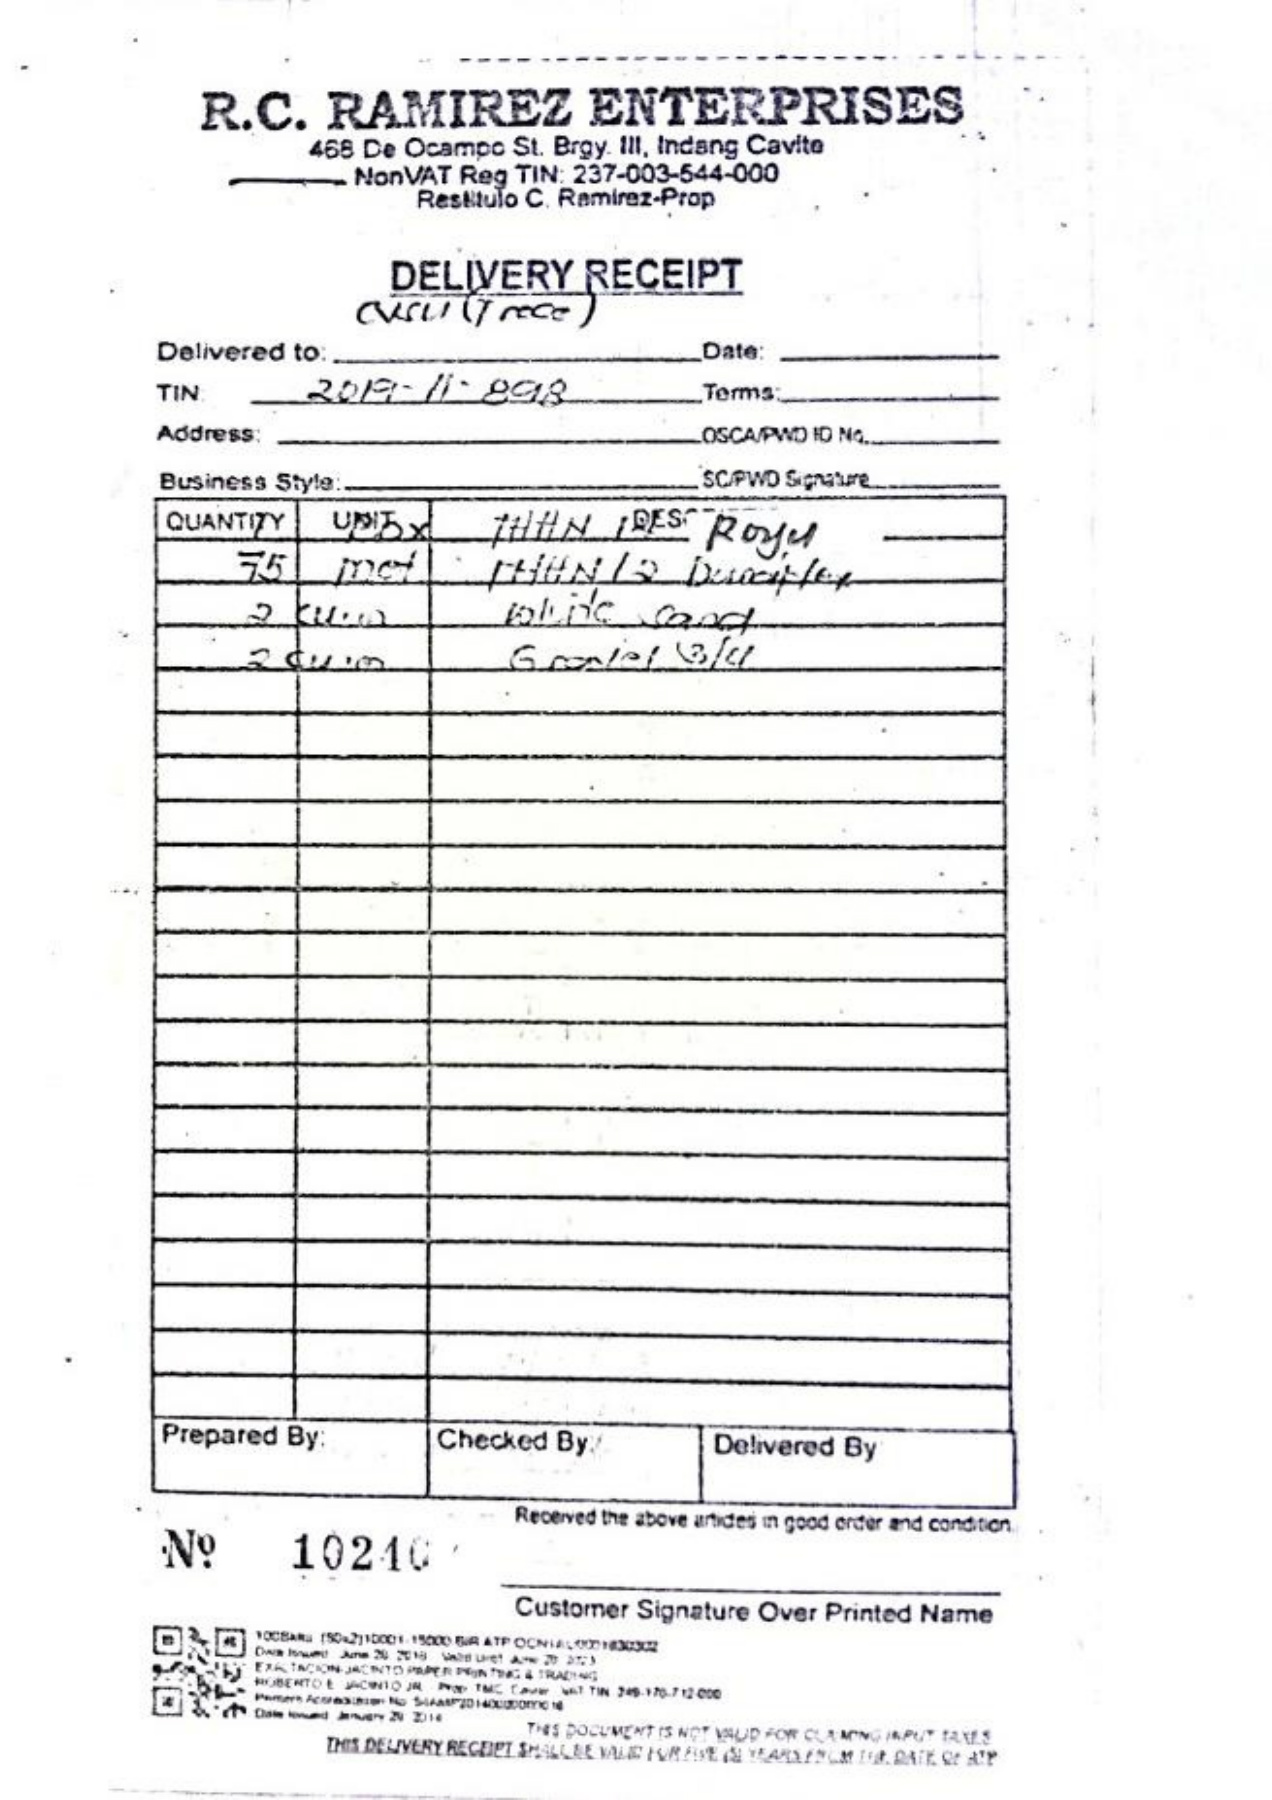 R.C. RAMIREZ ENTERPRISES
468 De Ocampo St. Brgy. III, Indang Cavite
NonVAT Reg TIN: 237-003-544-000
Restitulo C. Ramirez-Prop
DELIVERY RECEIPT
CVSU (Trece)
Delivered to: Date:
TIN: 2019-11-898 Terms:
Address: OSCA/PWD ID No.
Business Style: SC/PWD Signature
QUANTITY UNIT box THHN DES Royu
75 met THHN 12 Duraflex
2 cu.m White sand
2 cu.m Gravel 3/4
Prepared By: Checked By: Delivered By
Received the above articles in good order and condition.
Nº 10240
Customer Signature Over Printed Name
100Bxks (50x2)10001-15000 BIR ATP
Date Issued June 2018 Valid Until June 2023
EXALTACION-JACINTO PAPER PRINTING & TRADING
ROBERTO E. JACINTO JR. Prop TMC Cavite VAT TIN 249-170-712-000
Printers Accreditation No
Date Issued January 29 2014
THIS DOCUMENT IS NOT VALID FOR CLAIMING INPUT TAXES
THIS DELIVERY RECEIPT SHALL BE VALID FOR FIVE (5) YEARS FROM THE DATE OF ATP